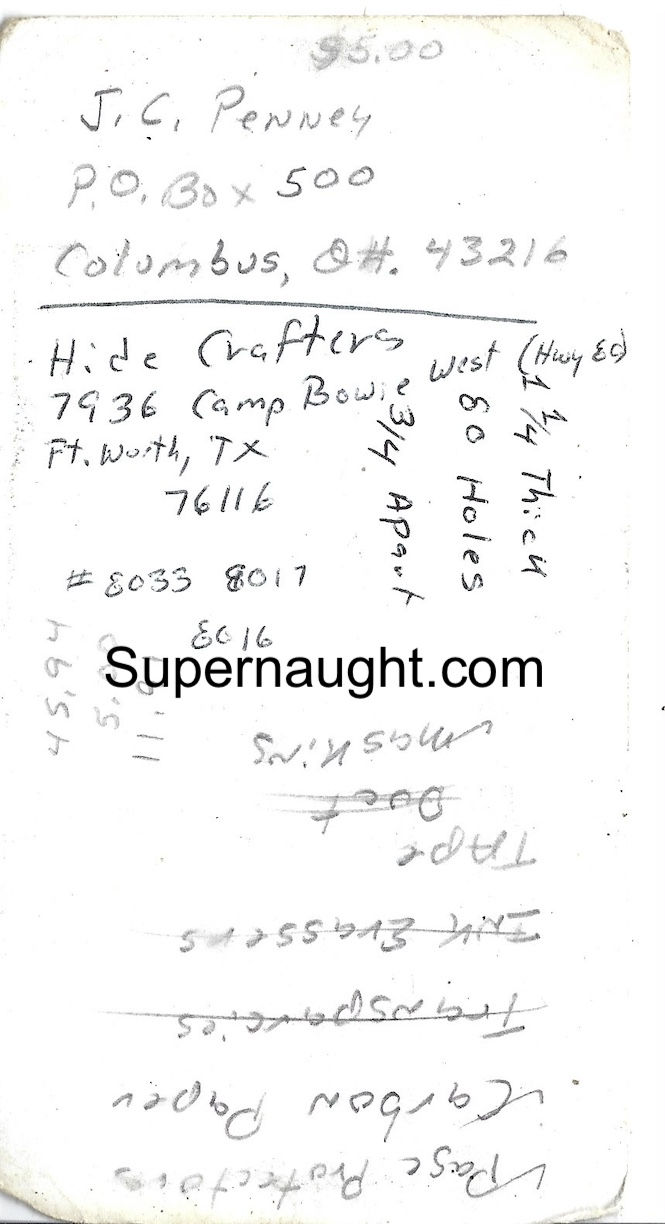 95.00
J.C. Penney
P.O. Box 500
Columbus, OH. 43216
Hide Crafters
7936 Camp Bowie West (Hwy 80)
Ft. Worth, TX
76116
#8033 8017
8016
1 1/4 Thick
80 Holes
3/4 Apart
Supernaught.com
Page Protectors
Carbon Paper
Transparcies
Ink Erassers
Tape
Duct
Masking